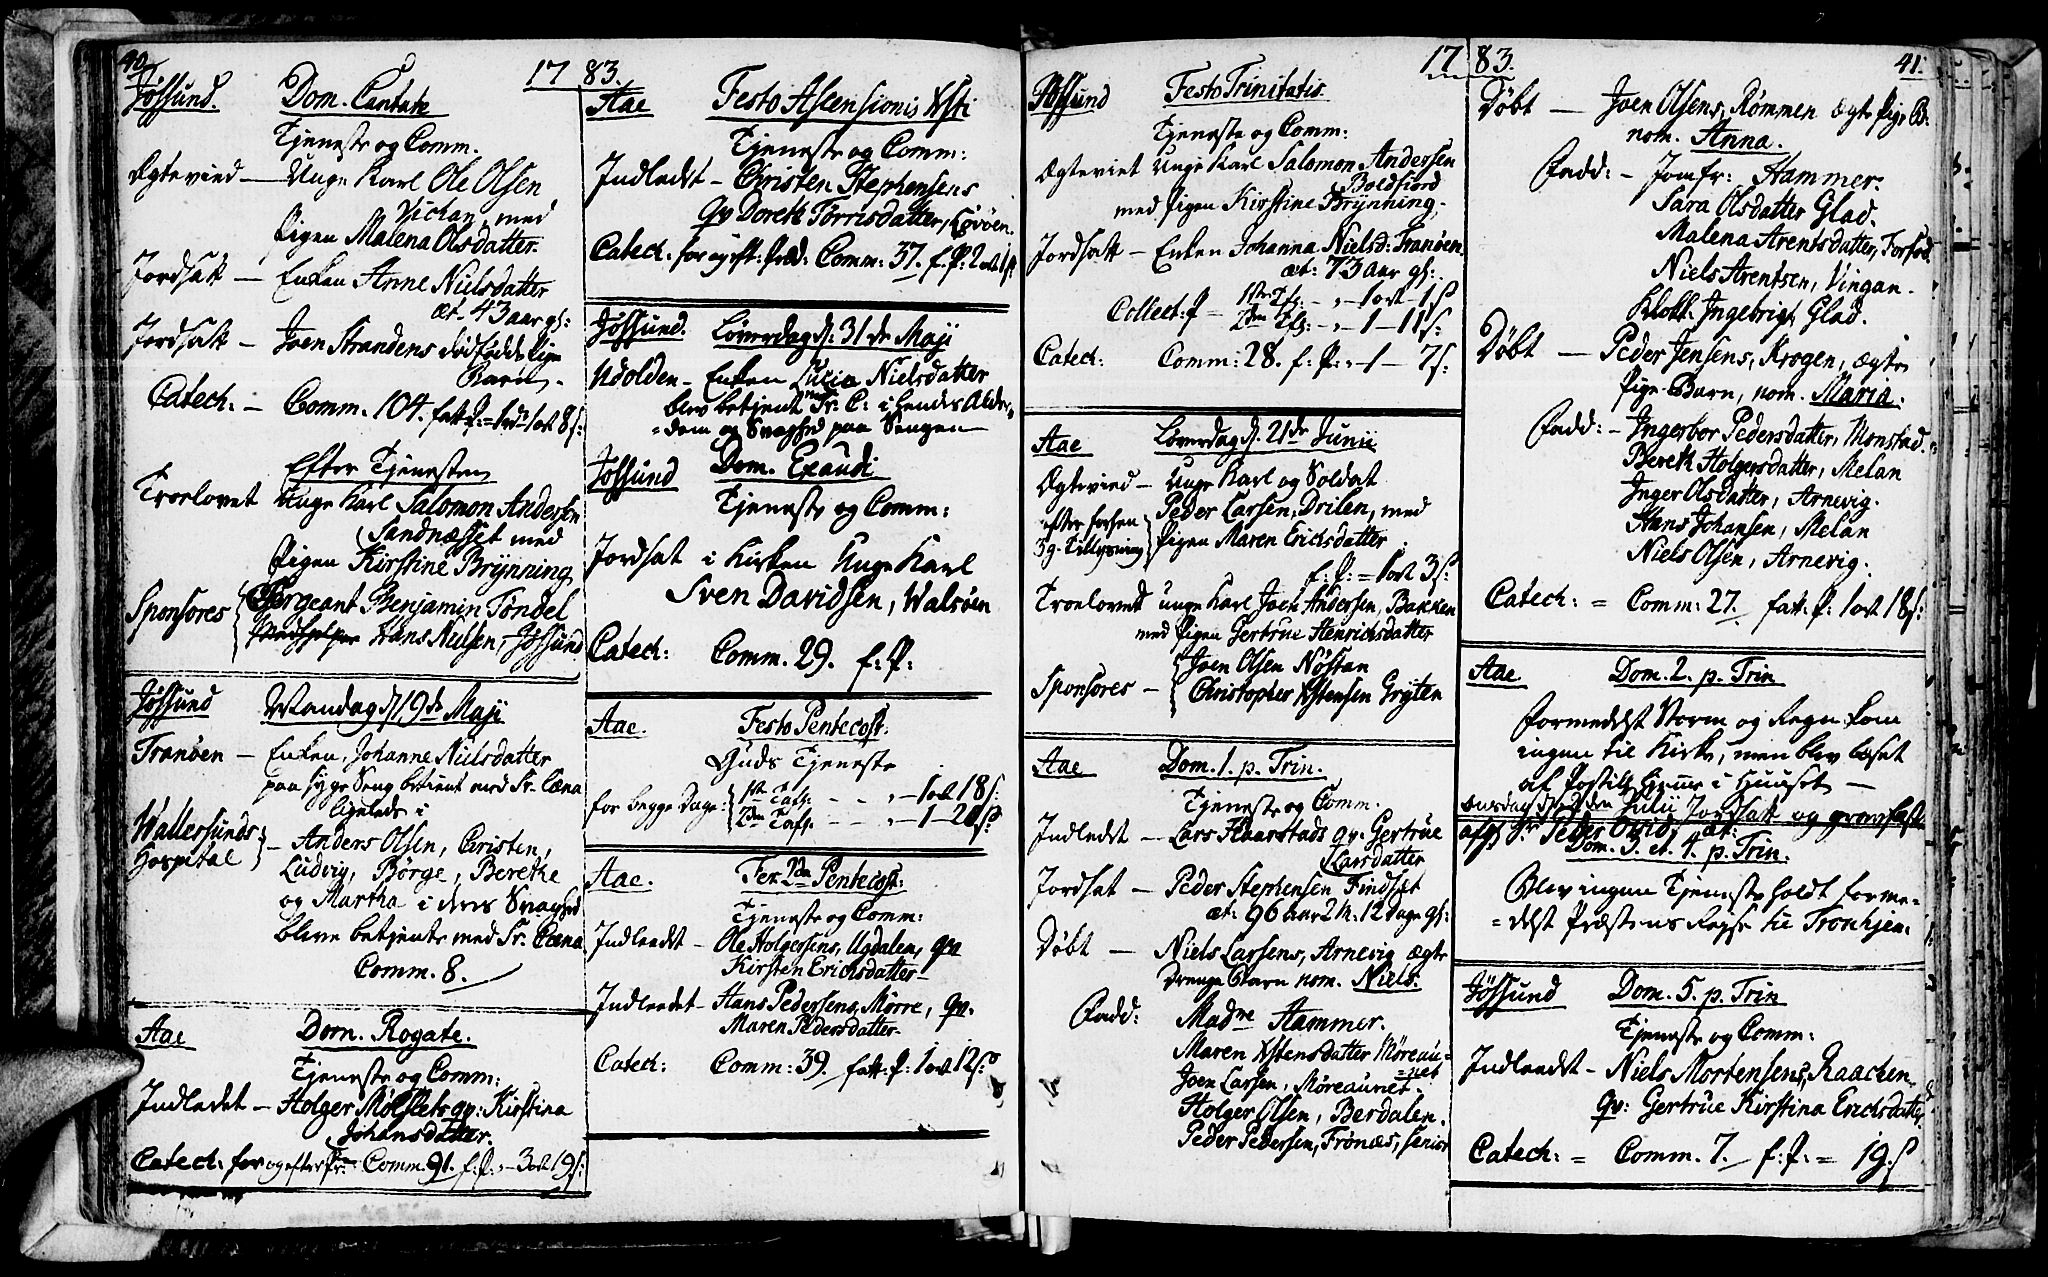 40.
17 83.
Jøssund. Dom. Cantate
Tjeneste og Comm.
Ægtevied — Unge Karl Ole Olsen
Vichan, med
Pigen Malena Olsdatter.
Jordsatt — Enken Anne Nielsdatter
æt. 43 aar gl:
Jordsatt — Joen Strandens dødfødde Pige
Barn.
Catech: — Comm. 104. fatt. P: = 1 ort 8 s:
Efter Tjenesten
Troelovet Unge Karl Salomon Andersen
Sandnæsset med
Pigen Kirstine Brÿnning
Sponsores Sergeant Benjamin Tøndel
Hans Nielsen, Jøssund
Jøssund Mandag d. 19de Maji
Tranøen — Enken, Johanne Nielsdatter
paa syge Seng betient med Sr. Cæna
ligeledes i
Wallersunds Hospital — Anders Olsen, Christen,
Ludvig, Børge, Berethe
og Martha i deres Svaghed
bleve betjente med Sr. Cæna
Comm. 8.
Aae Dom. Rogate.
Tjeneste og Comm:
Indledet — Holger Mølslets qv: Kirstina
Johansdatter.
Catech: for og efter Pr: Comm. 91. f. P: — 3 ort 19 s:
Aae Festo Ascensionis Xsti
Tjeneste og Comm:
Indledt — Christen Stephensens
qv Doreth Tørrisdatter, Løvøen.
Catech: for og eft. Præd: Comm: 37. f. P: 2 ort 1 s
Jøssund. Løverdag d. 31de Maji
Udolden — Enken Lucia Nielsdatter
blev betjent med Sr. C: i hendes Alder-
dom og Svaghed paa Sengen
Jøssund Dom. Exaudi
Tjeneste og Comm:
Jordsat i Kirken Unge Karl
Sven Davidsen, Walsøen
Catech: Comm. 29. f: P:
Aae. Festo Pentecost.
Guds Tjeneste
for begge Dage: 1ste Tafl. — 1 ort 18 s:
2den Tafl. — 1 — 20 s:
Aae. Fer. 2da Pentecost:
Tjeneste og Comm:
Indleedt — Ole Holgersens, Ugdalen, qv
Kirsten Erichsdatter
Indleedet — Hans Pedersens, Mørre, qv.
Maren Pedersdatter.
Catech: Comm: 39. fatt: P: 1 ort 12 s:
17 83.
41.
Jøssund Festo Trinitatis
Tjeneste og Comm:
Ægteviet Unge Karl Salomon Andersen
Boldfiord
med Pigen Kirstine Brÿnning.
Jordsatt — Enken Johanna Nielsd: Tranøen.
æt: 73 aar gl:
Collect: P — 1ste Tfl: — 1 ort — 1 s
2den Tfl: — 1 — 11 s:
Catech: Comm: 28. f: P: — 1 — 7 s:
Aae Løverdag d. 21de Junii
Ægtevied — Unge Karl og Soldat
Peder Larsen, Drilen, med
efter forhen
3 g. Tillysning Pigen Maren Erichsdatter
f: P: = 1 ort 3 s:
Troeloved unge Karl Joen Andersen, Bakken
med Pigen Gertrue Henrichsdatter
Sponsores — Joen Olsen Nøstan
Christopher Xstensen Grÿten
Aae Dom. 1. p. Trin.
Tjeneste og Comm.
Indledt — Lars Haarstads qv: Gertrue
Larsdatter
Jordsat — Peder Stephensen Findset
æt: 96 aar 2 M: 12 dage gl:
Døbt — Niels Larsens, Arnevig ægte
Drenge Barn nom. Niels.
Fadd: Madme Hammer.
Maren Xstensdatter Møreau-
net
Joen Larsen, Møreaunet.
Holger Olsen, Berdalen.
Peder Pedersen, Frønæs, senior
Døbt — Joen Olsens, Rømmen ægte Pige B:
nom. Anna.
Fadd: — Jomfr: Hammer.
Sara Olsdatter Glad.
Malena Arentsdatter, Forfod.
Niels Arentsen, Vingan.
Klokk: Ingebrigt Glad.
Døbt — Peder Jensens, Krogen, ægte
Pige Barn, nom. Maria.
Fadd: — Ingerbor Pedersdatter, Monstad.
Bereth Holgersdatter, Melan
Inger Olsdatter, Arnevig.
Hans Johansen, Melan
Niels Olsen, Arnevig.
Catech: = Comm: 27. fatt: P: 1 ort 18 s:
Aae Dom. 2. p. Trin
formedelst Storm og Regn kom
ingen til Kirke, men blev læset
af Postill hjeme i Huuset —
Onsdag den 2den Julii Jordsatt og gravfæst
afgl. Sr Peder Ovid, æt:
Dom. 3. et. 4. p. Trin.
Blev ingen Tjeneste holdt forme-
delst Præstens Rejse til Tronhjem.
Jøssund Dom. 5. p. Trin
Tjeneste og Comm:
Indleedt — Niels Mortensens, Raachen
qv: Gertrue Kirstina Erichsdatter
Catech: = Comm. 7. f: P: = 19: s